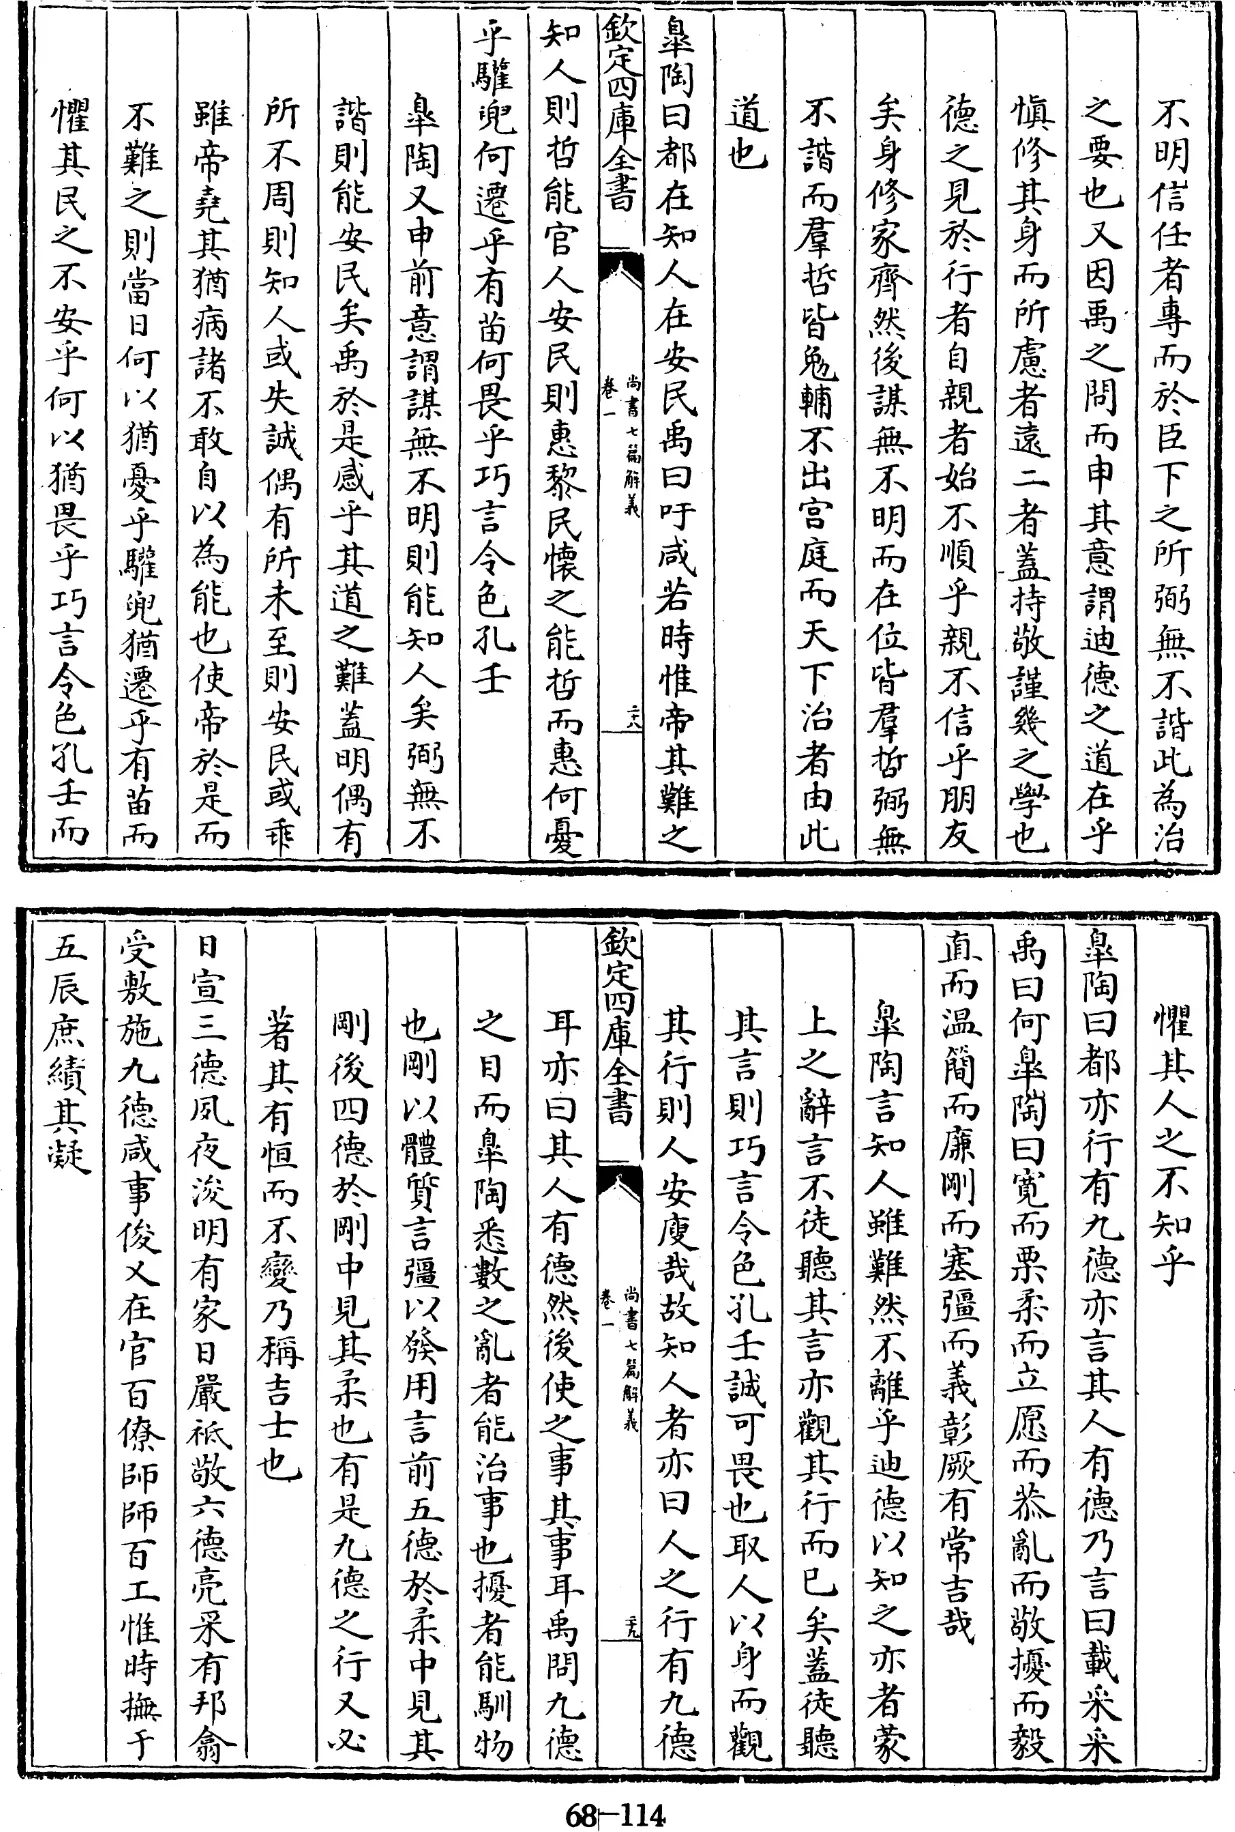 不明信任者專而於臣下之所弼無不諧此為治
之要也又因禹之問而申其意謂迪德之道在乎
慎修其身而所慮者遠二者蓋持敬謹幾之學也
德之見於行者自親者始不順乎親不信乎朋友
矣身修家齊然後謀無不明而在位皆羣哲弼無
不諧而羣哲皆勉輔不出宫庭而天下治者由此
道也
臯陶曰都在知人在安民禹曰吁咸若時惟帝其難之
欽定四庫全書
尚書七篇解義
卷一
二十八
知人則哲能官人安民則惠黎民懷之能哲而惠何憂
乎驩兜何遷乎有苗何畏乎巧言令色孔壬
臯陶又申前意謂謀無不明則能知人矣弼無不
諧則能安民矣禹於是感乎其道之難蓋明偶有
所不周則知人或失誠偶有所未至則安民或乖
雖帝堯其猶病諸不敢自以為能也使帝於是而
不難之則當日何以猶憂乎驩兜猶遷乎有苗而
懼其民之不安乎何以猶畏乎巧言令色孔壬而
懼其人之不知乎
臯陶曰都亦行有九德亦言其人有德乃言曰載采采
禹曰何臯陶曰寛而栗柔而立愿而恭亂而敬擾而毅
直而温簡而廉剛而塞彊而義彰厥有常吉哉
臯陶言知人雖難然不離乎迪德以知之亦者蒙
上之辭言不徒聽其言亦觀其行而已矣蓋徒聽
其言則巧言令色孔壬誠可畏也取人以身而觀
其行則人安廋哉故知人者亦曰人之行有九德
欽定四庫全書
尚書七篇解義
卷一
二十九
耳亦曰其人有德然後使之事其事耳禹問九德
之目而臯陶悉數之亂者能治事也擾者能馴物
也剛以體質言彊以發用言前五德於柔中見其
剛後四德於剛中見其柔也有是九德之行又必
著其有恒而不變乃稱吉士也
日宣三德夙夜浚明有家日嚴祗敬六德亮采有邦翕
受敷施九德咸事俊乂在官百僚師師百工惟時撫于
五辰庶績其凝
68-114